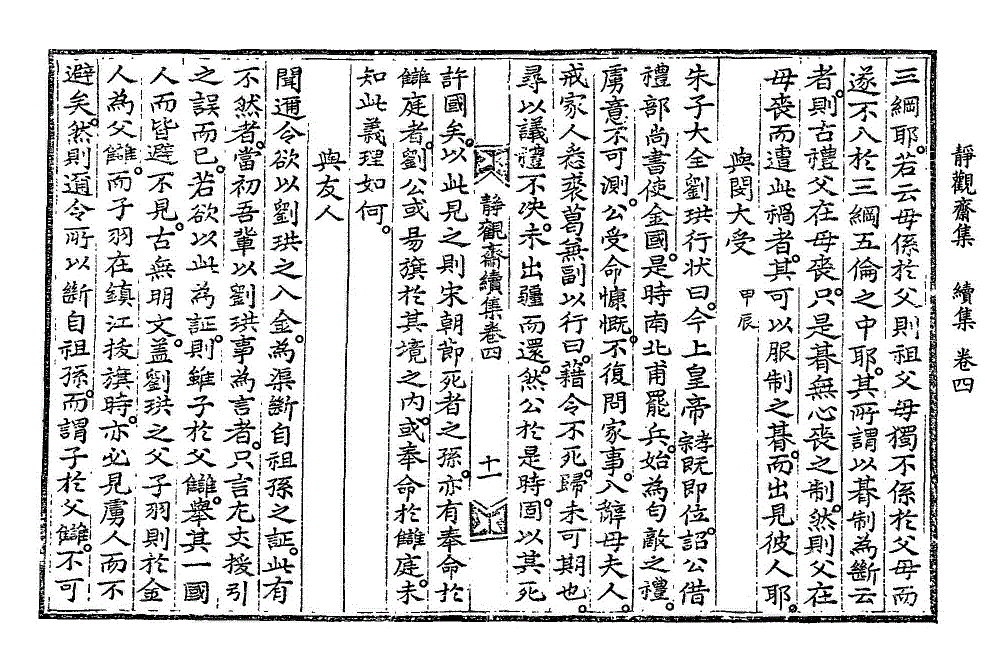 靜觀齋集　續集　卷四
三綱耶。若云母係於父則祖父母獨不係於父母而
遂不入於三綱五倫之中耶。其所謂以朞制為斷云
者。則古禮父在母喪。只是朞無心喪之制。然則父在
母喪而遭此禍者。其可以服制之朞。而出見彼人耶。
與閔大受　甲辰
朱子大全劉珙行狀曰。今上皇帝孝宗既即位。詔公借
禮部尚書使金國。是時南北甫罷兵。始為匂敵之禮。
虜意不可測。公受命慷慨。不復問家事。入辭母夫人。
戒家人悉裘葛無副以行曰。藉令不死。歸未可期也。
尋以議禮不决。未出疆而還。然公於是時。固以其死
靜觀齋續集卷四　十一
許國矣。以此見之則宋朝節死者之孫。亦有奉命於
讎庭者。劉公或昜旗於其境之內。或奉命於讎庭。未
知此義理如何。
與友人
聞邇令欲以劉珙之入金。為渠斷自祖孫之証。此有
不然者。當初吾輩以劉珙事為言者。只言尤丈援引
之誤而已。若欲以此為証。則雖子於父讎。舉其一國
人而皆避不見。古無明文。盖劉珙之父子羽則於金
人為父讎。而子羽在鎮江掞旗時。亦必見虜人而不
避矣。然則邇令所以斷自祖孫。而謂子於父讎。不可